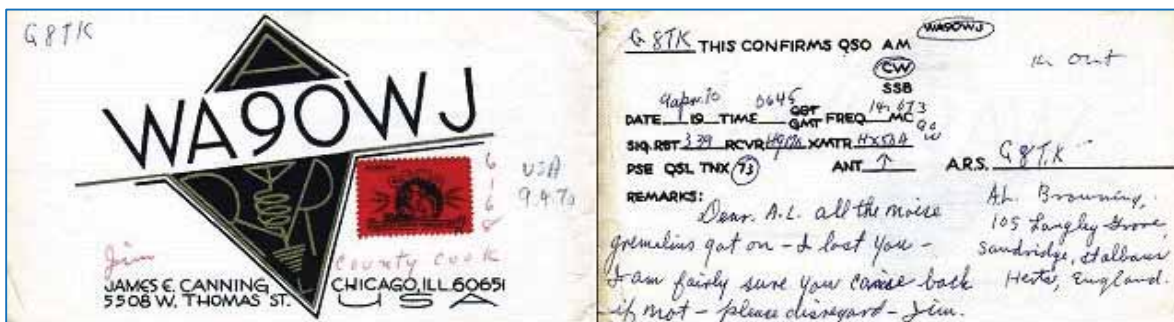 G8TK
WA9OWJ
USA
9.4.70
6
1
6
8
Jim
County Cook
JAMES E. CANNING
CHICAGO, ILL. 60651
5508 W. THOMAS ST.
USA
WA9OWJ
G8TK THIS CONFIRMS QSO AM
CW
SSB
in out
DATE 9 Apr. 70 19 TIME 0645 GMT FREQ MC
SIG. RST 339 RCVR XMTR HX50A
PSE QSL TNX 73 ANT ↑ A.R.S. G8TK
REMARKS:
Dear A.L. all the noise
gremelins got on - I lost you -
I am fairly sure you came back
if not - please disregard - Jim.
A.L. Browning,
105 Langley Grove,
Sandridge, Stalbans
Herts, England.